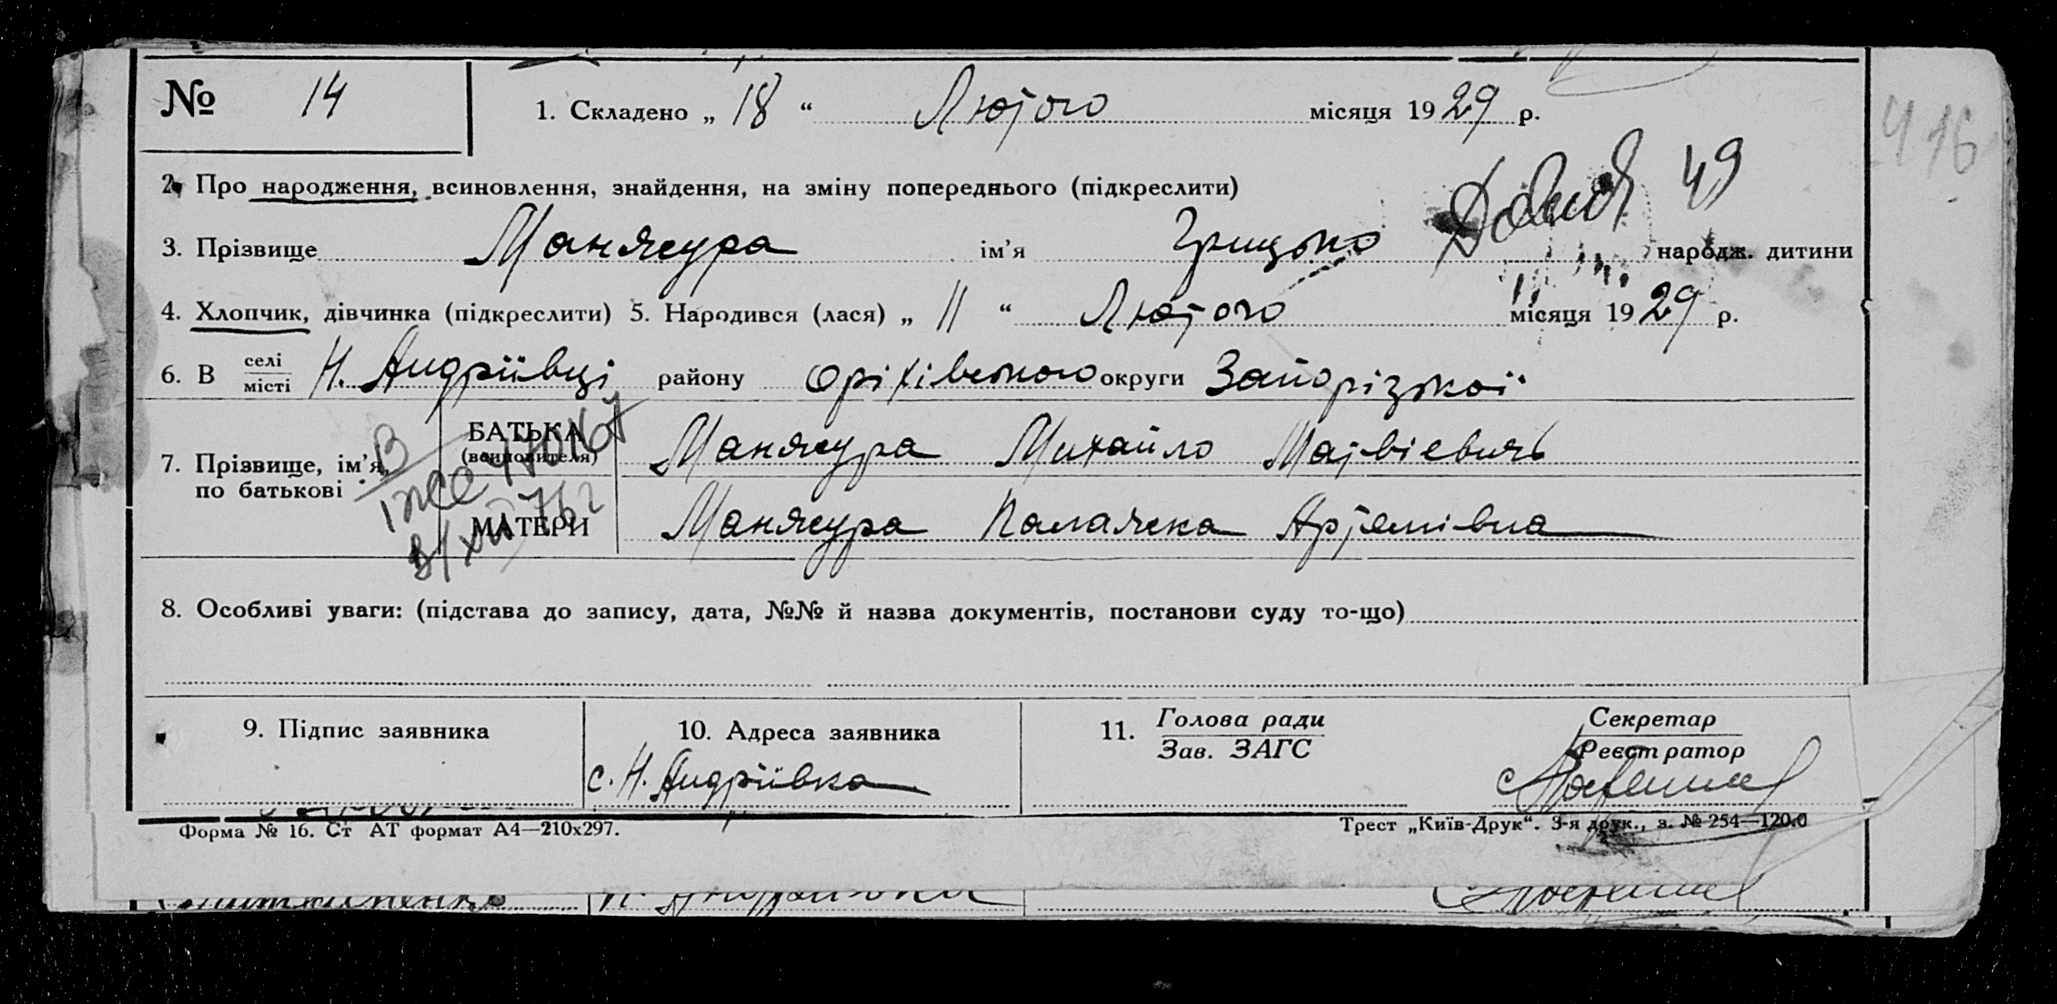 № 14 1. Складено „ 18 “ Лютого місяця 1929 р.
416
49
2. Про народження, всиновлення, знайдення, на зміну попереднього (підкреслити)
3. Прізвище Манжура ім’я Грицько народж. дитини
4. Хлопчик, дівчинка (підкреслити) 5. Народився (лася) „ 11 “ Лютого місяця 1929 р.
6. В селі місті Н. Андріївці району Оріхівського округи Запорізкої
7. Прізвище, ім’я, по батькові
БАТЬКА (всиновителя) Манжура Михайло Матвієвичь
МАТЕРИ Манжура Палажка Артемівна
8. Особливі уваги: (підстава до запису, дата, №№ й назва документів, постанови суду то-що)
9. Підпис заявника 10. Адреса заявника 11. Голова ради Зав. ЗАГС Секретар Реєстратор
с. Н. Андріївка
Форма № 16. Ст АТ формат А4—210х297. Трест „Київ-Друк“. 3-я друк., з. № 254—120.0